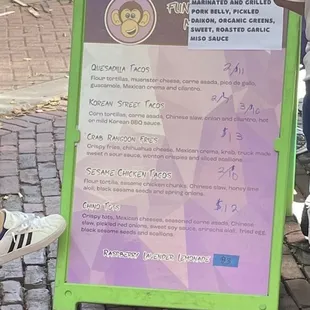 MARINATED AND GRILLED
PORK BELLY, PICKLED
DAIKON, ORGANIC GREENS,
SWEET, ROASTED GARLIC
MISO SAUCE
FUN
Quesadilla Tacos 2/11
Flour tortillas, muenster cheese, carne asada, pico de gallo,
guacamole, Mexican crema and cilantro.
Korean Street Tacos 2/ 3/16
Corn tortillas, carne asada, Chinese slaw, onion and cilantro, hot
or mild Korean BBQ sauce.
Crab Rangoon Fries $13
Crispy fries, chihuahua cheese, Mexican crema, krab,
sweet n sour sauce, wonton crisps and sliced scallions.
Sesame Chicken Tacos 2/10
Flour tortilla, sesame chicken chunks, Chinese slaw, honey
aioli, black sesame seeds and spring onions.
Chino Tots $12
Crispy tots, Mexican cheeses, seasoned carne asada, Chinese
slaw, pickled red onions, sweet soy sauce, sriracha aioli, fried egg,
black sesame seeds and scallions.
Raspberry Lavender Lemonade